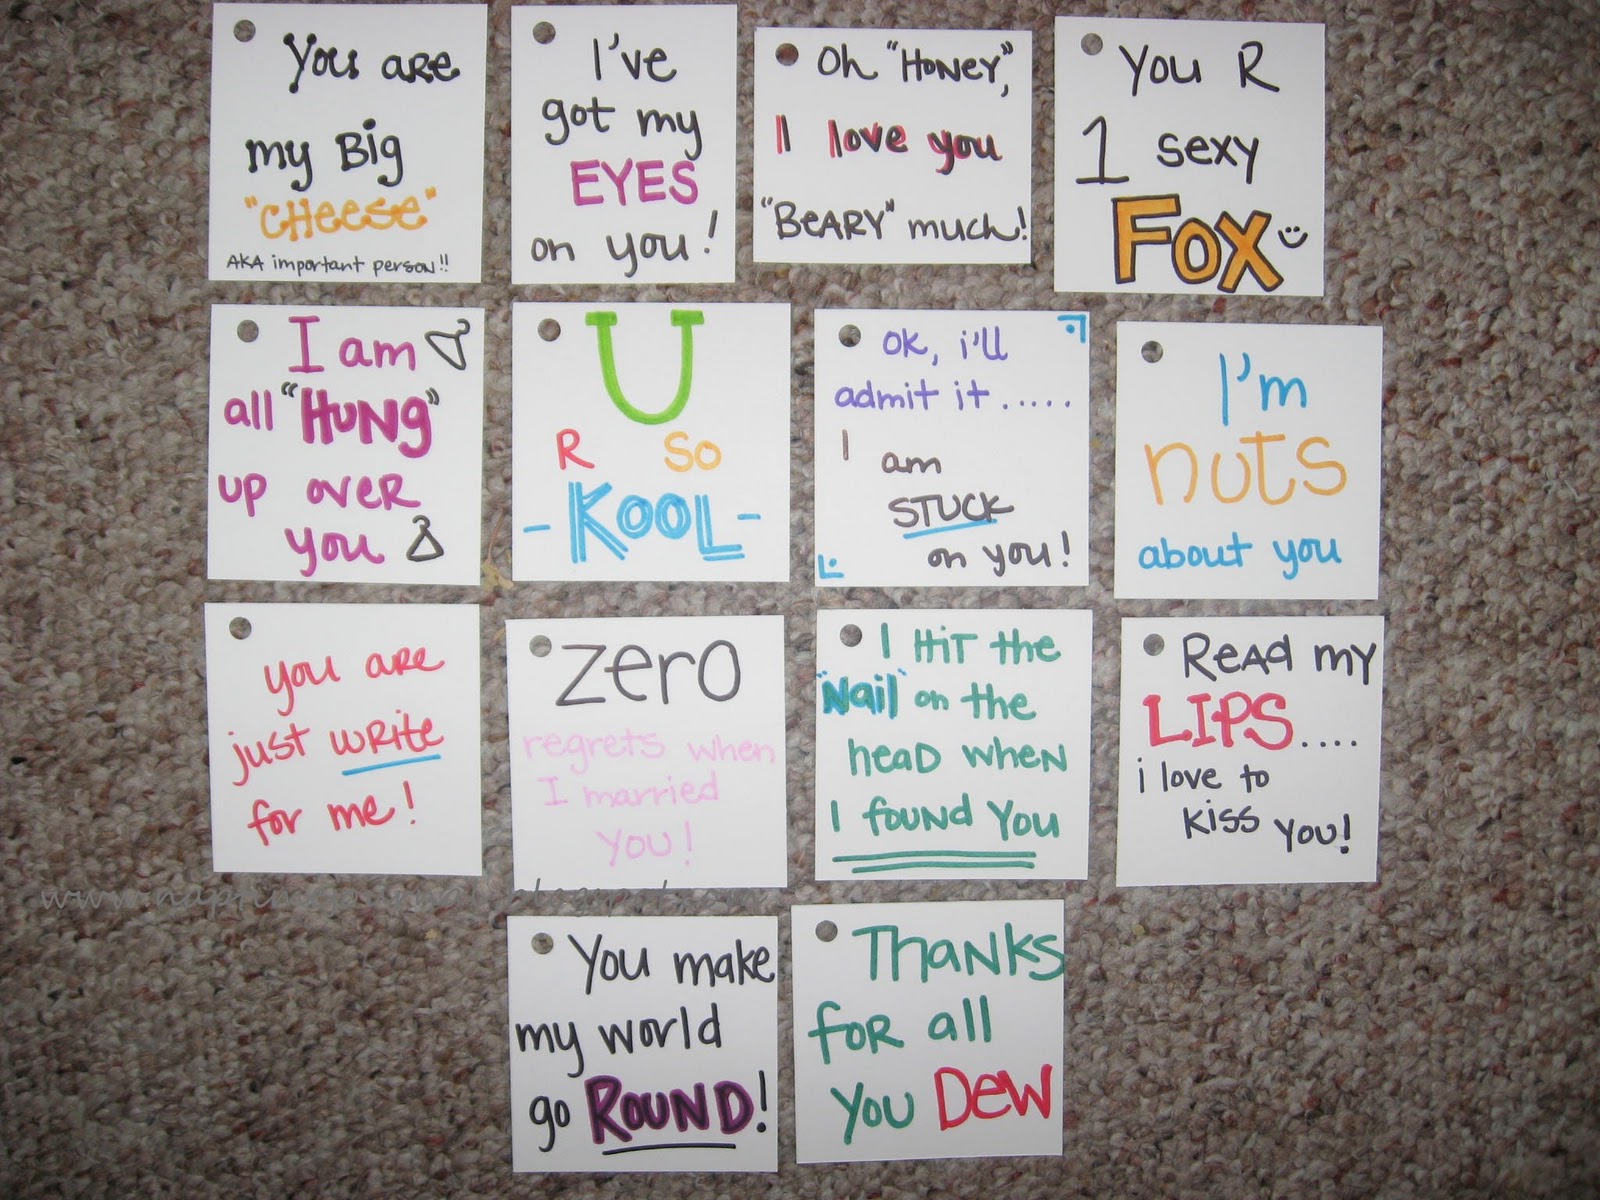 You are
my Big
"CHEESE"
AKA important person!!
I've
got my
EYES
on you!
Oh "HONEY",
I love you
"BEARY" much!
You R
1 sexy
FOX
I am
all "HUNG"
up over
you
U
R SO
-KOOL-
OK, i'll
admit it.....
I am
STUCK
on you!
I'm
nuts
about you
you are
just write
for me!
zero
regrets when
I married
you!
I HiT the
"Nail" on the
head when
I found you
Read my
LIPS....
i love to
kiss you!
You make
my world
go ROUND!
Thanks
for all
you DEW